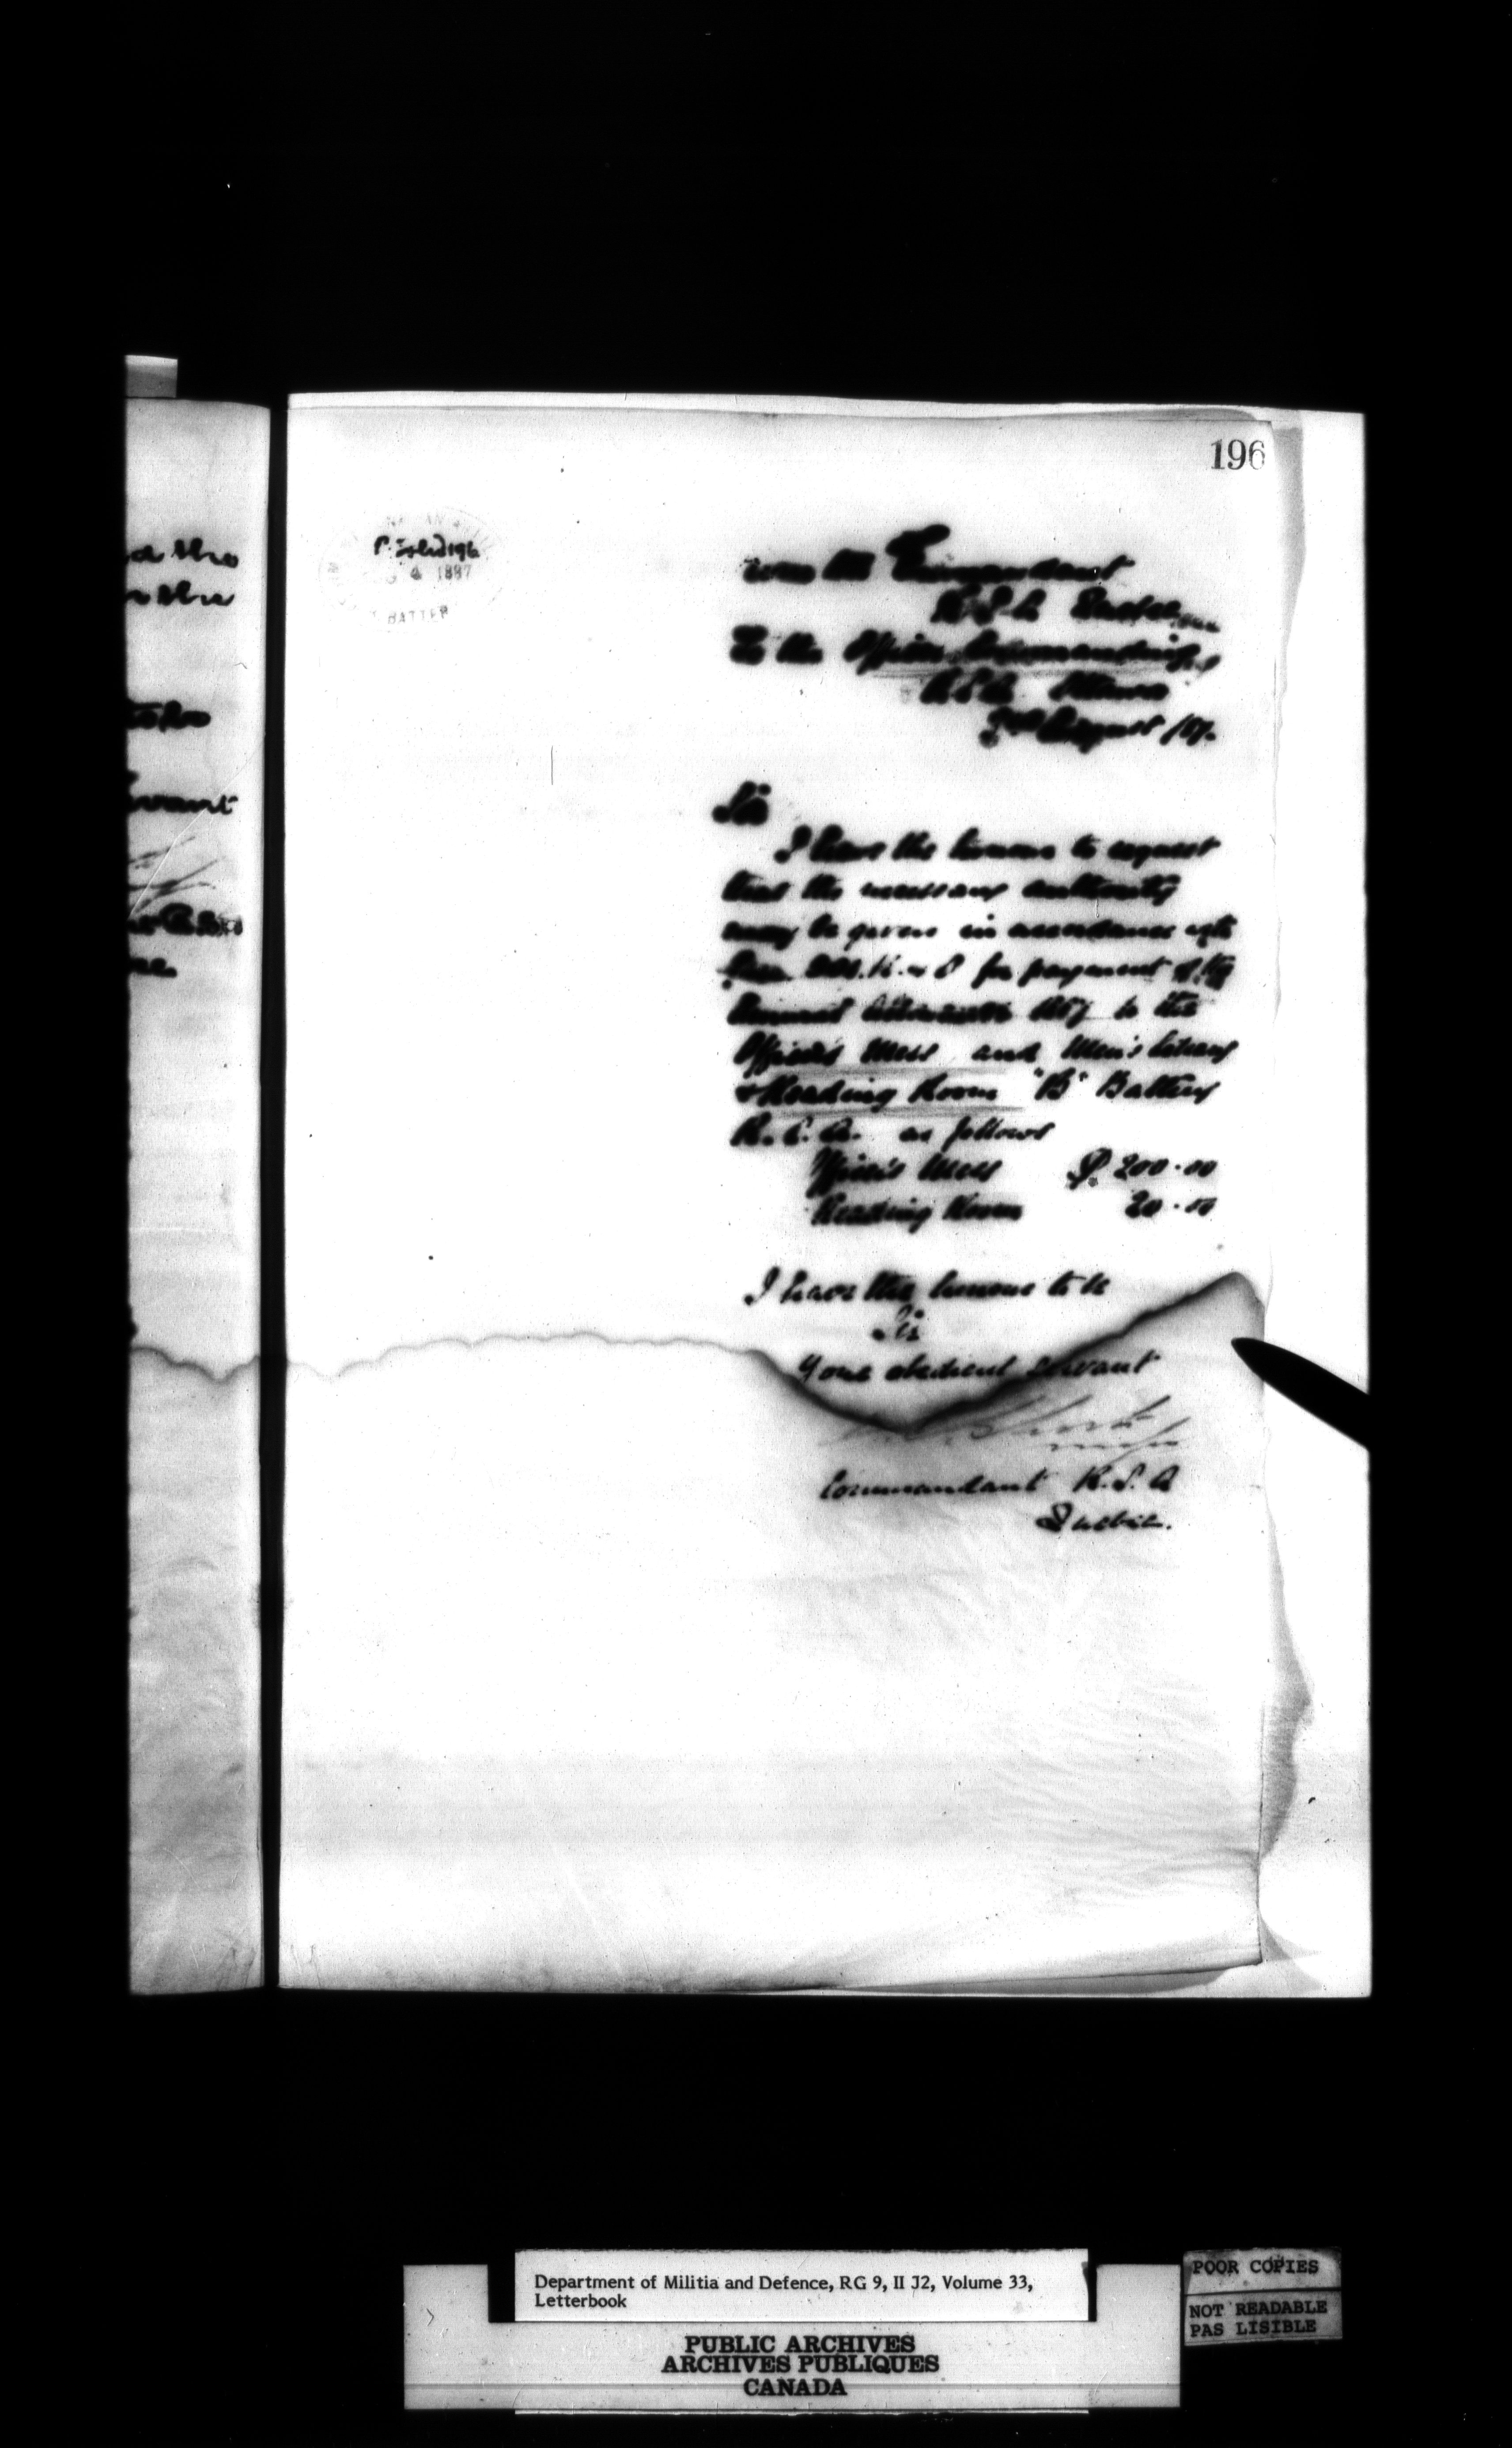 196
AUG 4 1887
BATTER
the Commandant
R.S.A.
To the Officer Commanding
R.S.A. Ottawa
2nd August /87.
Sir
I have the honour to request
that the necessary authority
may be given in accordance with
for payment of the
Annual Allowance 1887 to the
Officer's Mess and Men's Library
& Reading Room "B" Battery
R.C.A. as follows
Officer's Mess $ 200.00
Reading Room 20.00
I have the honour to be
Sir
Your obedient servant
Short
Major
Commandant R.S.A
Quebec.
d the
the
servant
Department of Militia and Defence, RG 9, II J2, Volume 33,
Letterbook
PUBLIC ARCHIVES
ARCHIVES PUBLIQUES
CANADA
POOR COPIES
NOT READABLE
PAS LISIBLE